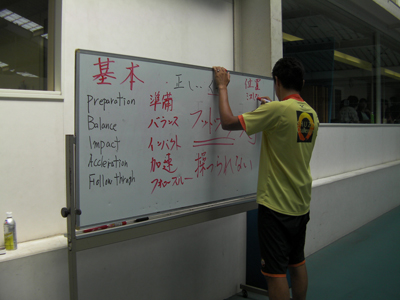 基本
正し
Preparation 準備
Balance バランス
Impact インパクト
Accleration 加速
Follow throgh フォロースルー
フット
操つられない